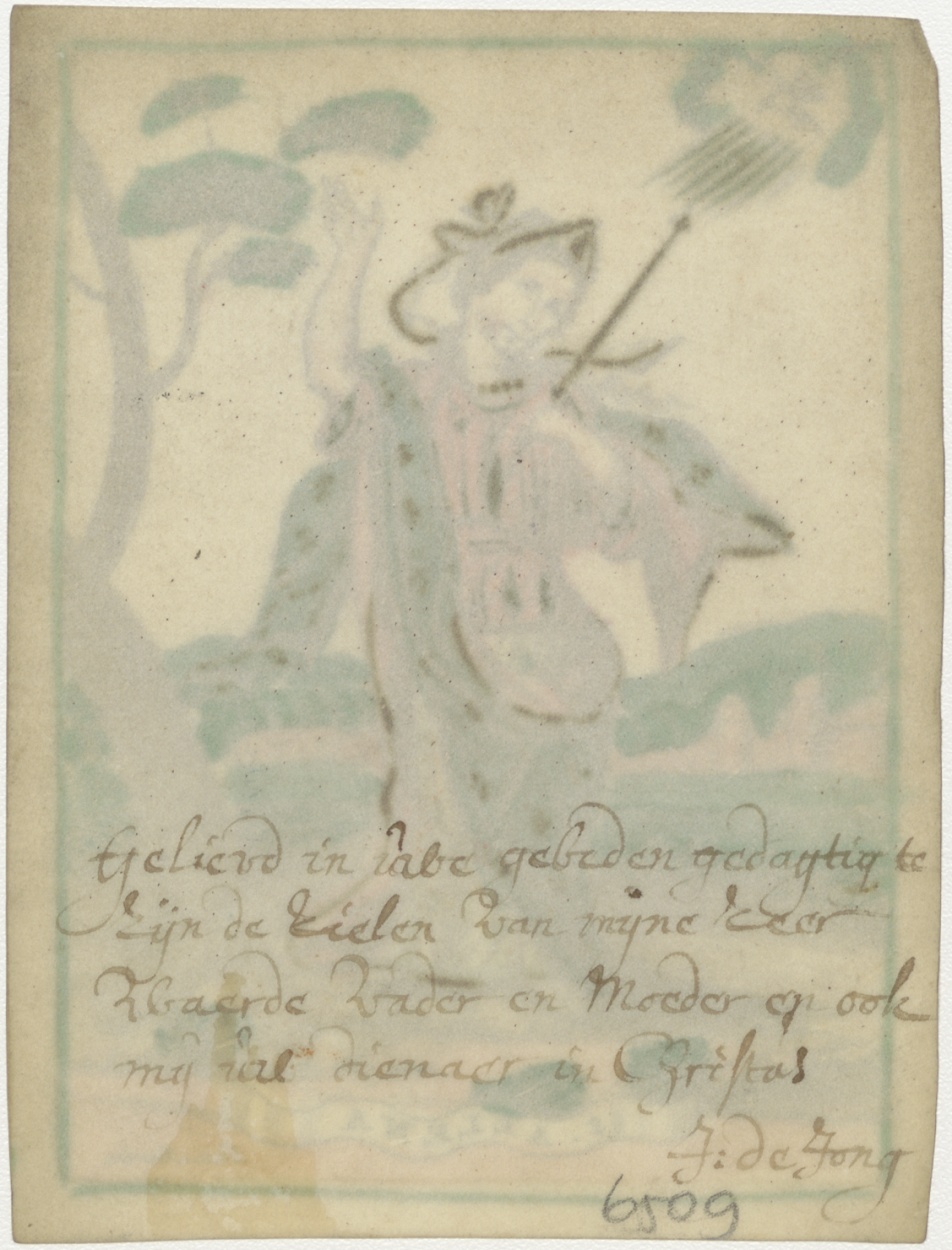 Gelievd in uwe gebeden gedagtig te
zijn de zielen van mijne zeer
Waerde Vader en Moeder en ook
mij uw dienaer in Christus
J: de Jong
6509